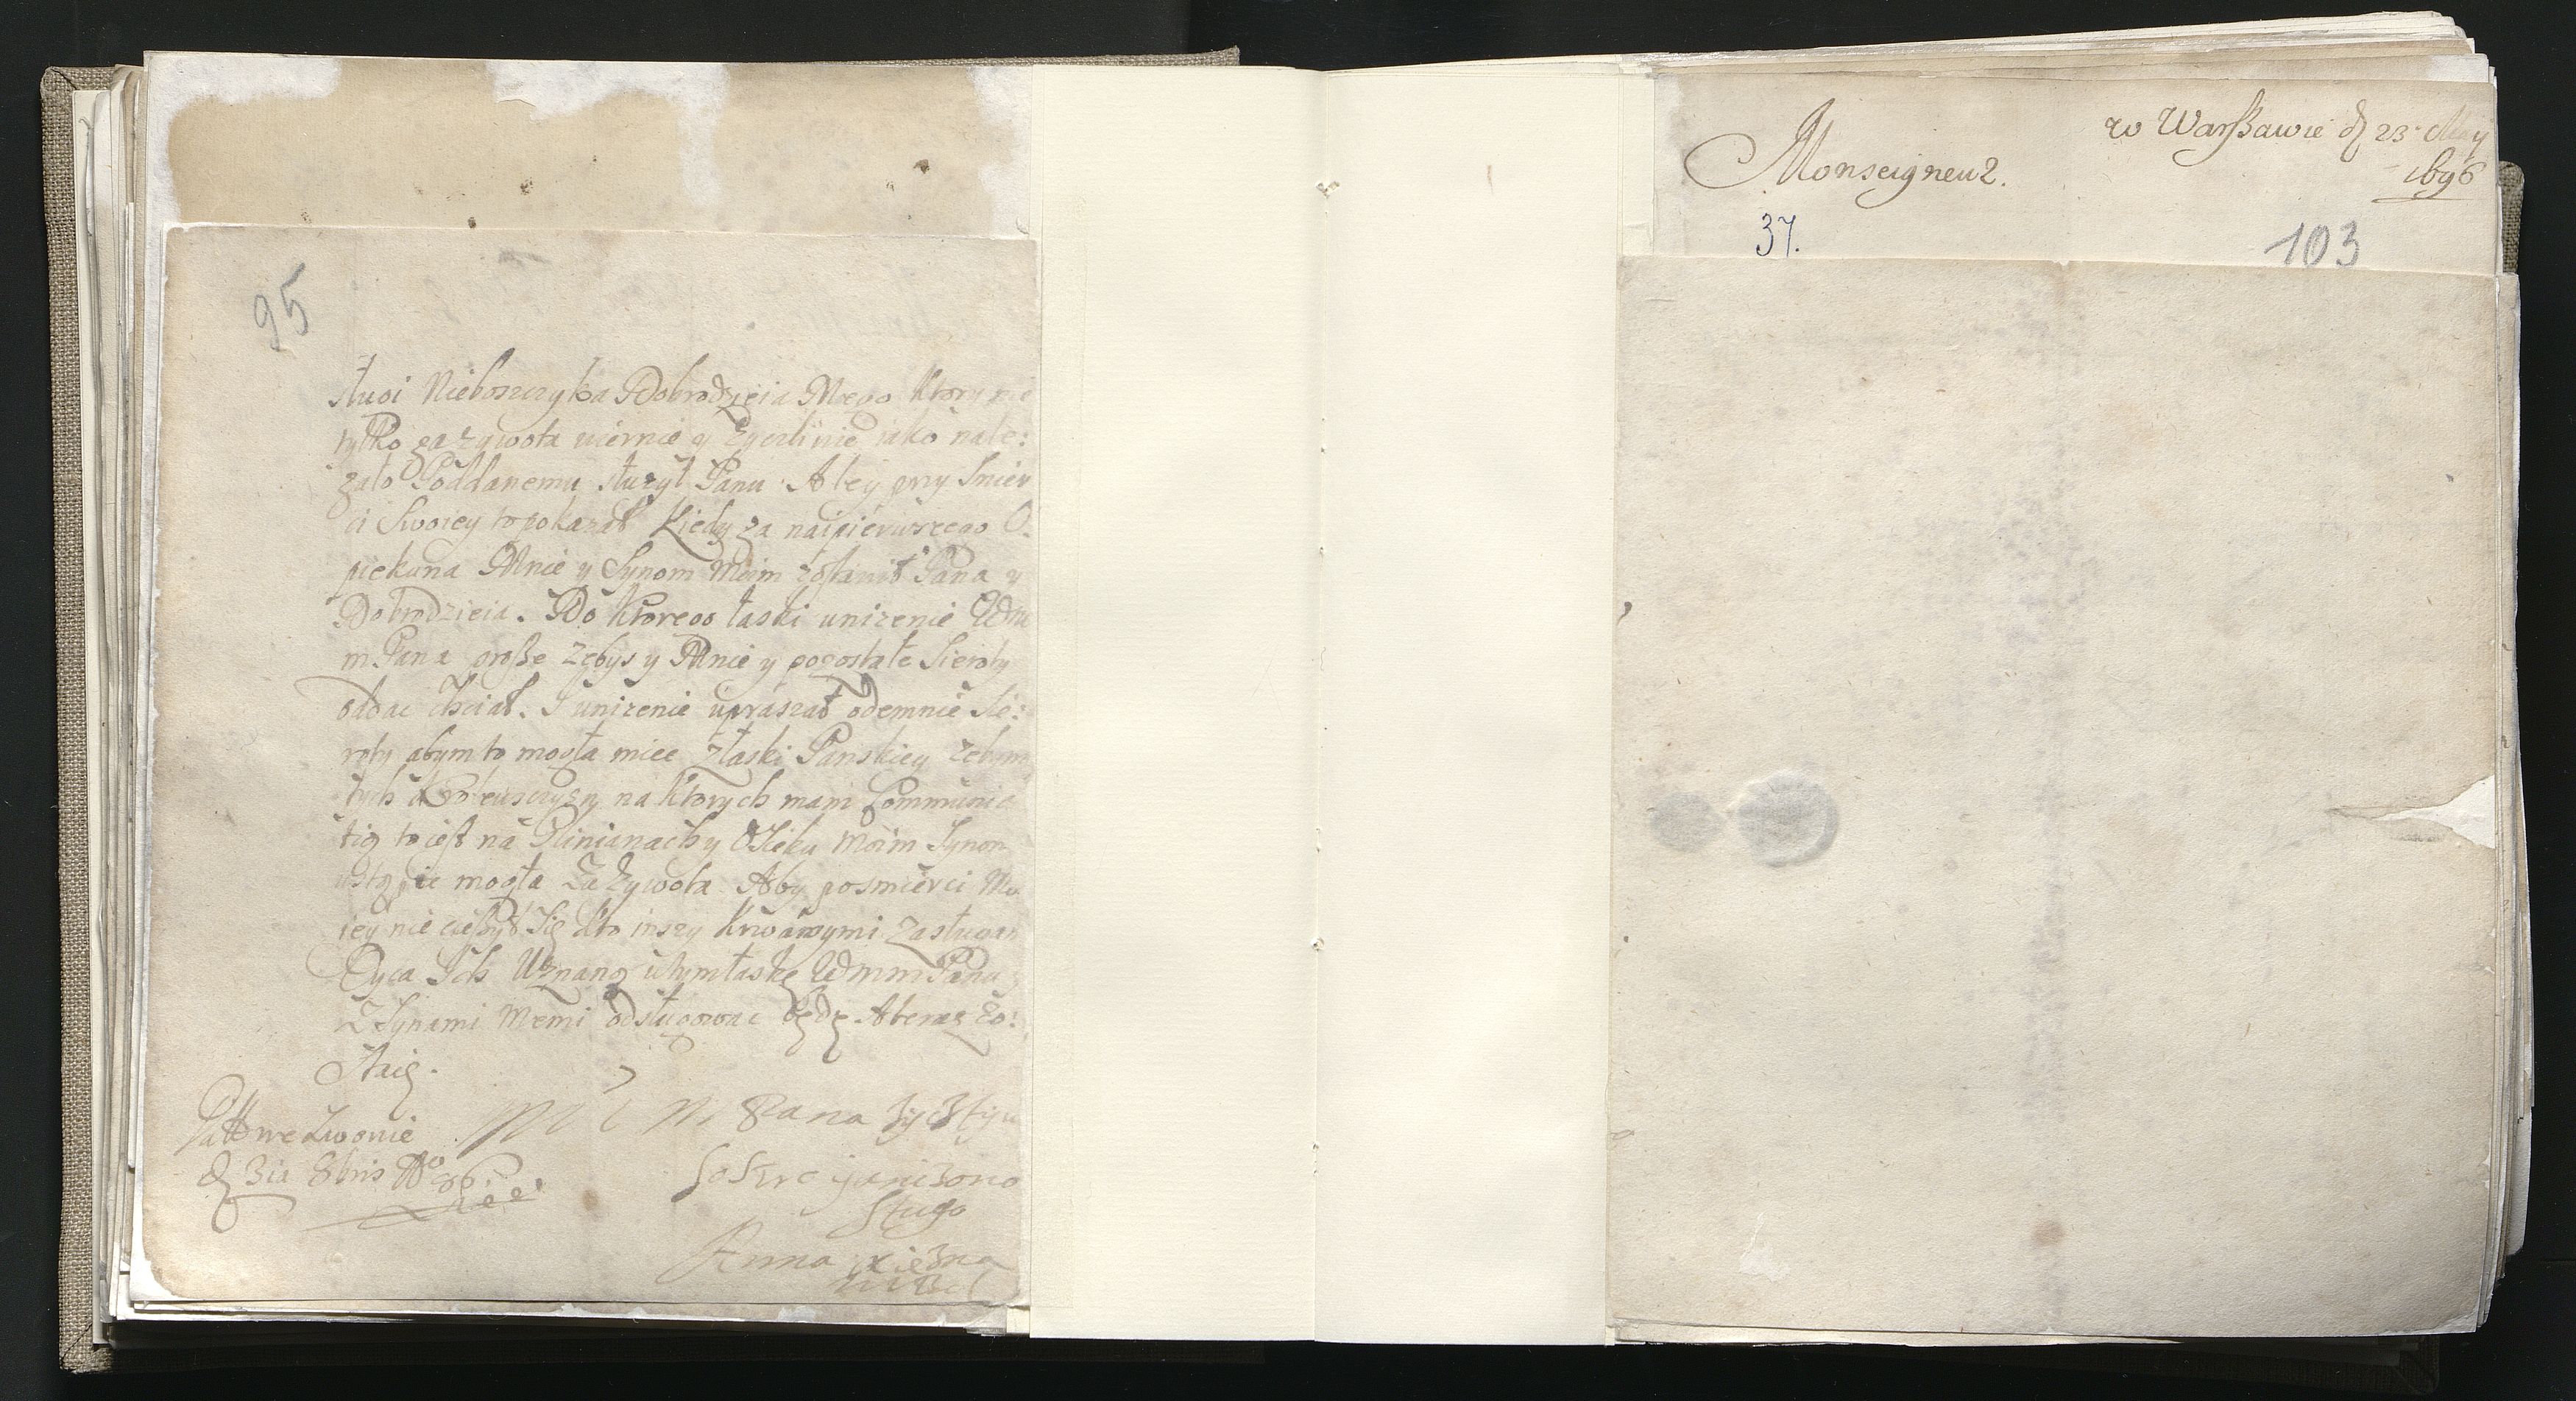 95
sługi Nieboszczyka Dobrodzieia Mego Ktory nie
tylko za zywota wiernie y zyczliwie iako nale:
zało Poddanemu słuzył Panu. A tey przy Smier
ci Swoiey to pokazał Kiedy za naipierwszego O-
piekuna Mnie y Synom Moim zostawił Pana y
Dobrodzieia. Do Ktorego łaski unizenie Wm
m Pana proszę Zębys y Mnie y pozostałe Sieroty
oddac chciał. I unizenie upraszał odemnie Sie:
roty abym to mogła miec z łaski Panskiey zebym
tych na Ktorych mam Communica
tią to iest na Glinianach y Osieku moim Synom
ustąpic mogła Za Zywota Aby po smierci Mo
iey nie cieszył Się Kto inszy Krwawymi Zasługami
Oyca Ich Uznaną w tym łaskę Wmm Pana
Z Synami Memi odsługowac będę A teraz Zo:
staię.
Datt we Lwowie
d 3ia 8bris Ao 86
M M Pana
unizona
sługa
Anna xiężna
Monseigneur.
w Warszawie d 23 May
1696
37.
103